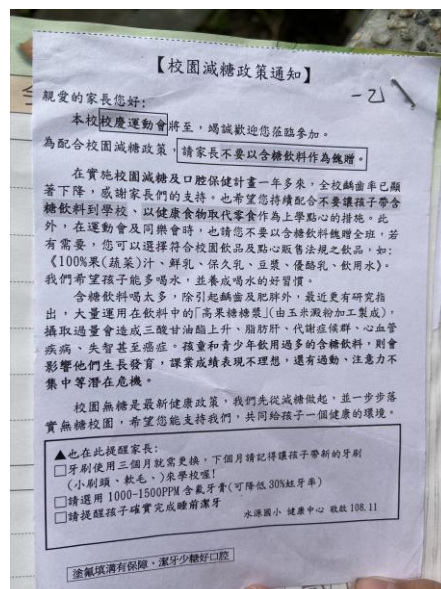 【校園減糖政策通知】
親愛的家長您好:
一乙
本校校慶運動會將至，竭誠歡迎您蒞臨參加。
為配合校園減糖政策，請家長不要以含糖飲料作為餽贈。
在實施校園減糖及口腔保健計畫一年多來，全校齲齒率已顯
著下降，感謝家長們的支持。也希望您持續配合不要讓孩子帶含
糖飲料到學校、以健康食物取代零食作為上學點心的措施。此
外，在運動會及同樂會時，也請您不要以含糖飲料餽贈全班，若
有需要，您可以選擇符合校園飲品及點心販售法規之飲品，如:
《100%果(蔬菜)汁、鮮乳、保久乳、豆漿、優酪乳、飲用水》。
我們希望孩子能多喝水，並養成喝水的好習慣。
含糖飲料喝太多，除引起齲齒及肥胖外，最近更有研究指
出，大量運用在飲料中的「高果糖糖漿」(由玉米澱粉加工製成)，
攝取過量會造成三酸甘油酯上升、脂肪肝、代謝症候群、心血管
疾病、失智甚至癌症。孩童和青少年飲用過多的含糖飲料，則會
影響他們生長發育，課業成績表現不理想，還有過動、注意力不
集中等潛在危機。
校園無糖是最新健康政策，我們先從減糖做起，並一步步落
實無糖校園，希望您能支持我們，共同給孩子一個健康的環境。
▲也在此提醒家長:
□牙刷使用三個月就需更換，下個月請記得讓孩子帶新的牙刷
(小刷頭、軟毛、)來學校喔!
□請選用 1000-1500PPM 含氟牙膏(可降低 30%蛀牙率)
□請提醒孩子確實完成睡前潔牙
水源國小 健康中心 敬啟 108.11
塗氟填溝有保障、潔牙少糖好口腔